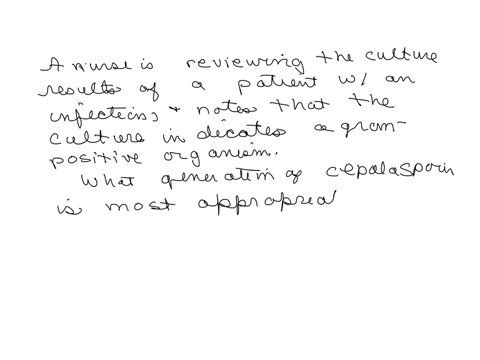 A nurse is reviewing the culture
results of a patient w/ an
infections & notes that the
culture in dicates a gram-
positive organism.
What generation of cepalasporin
is most appropreat